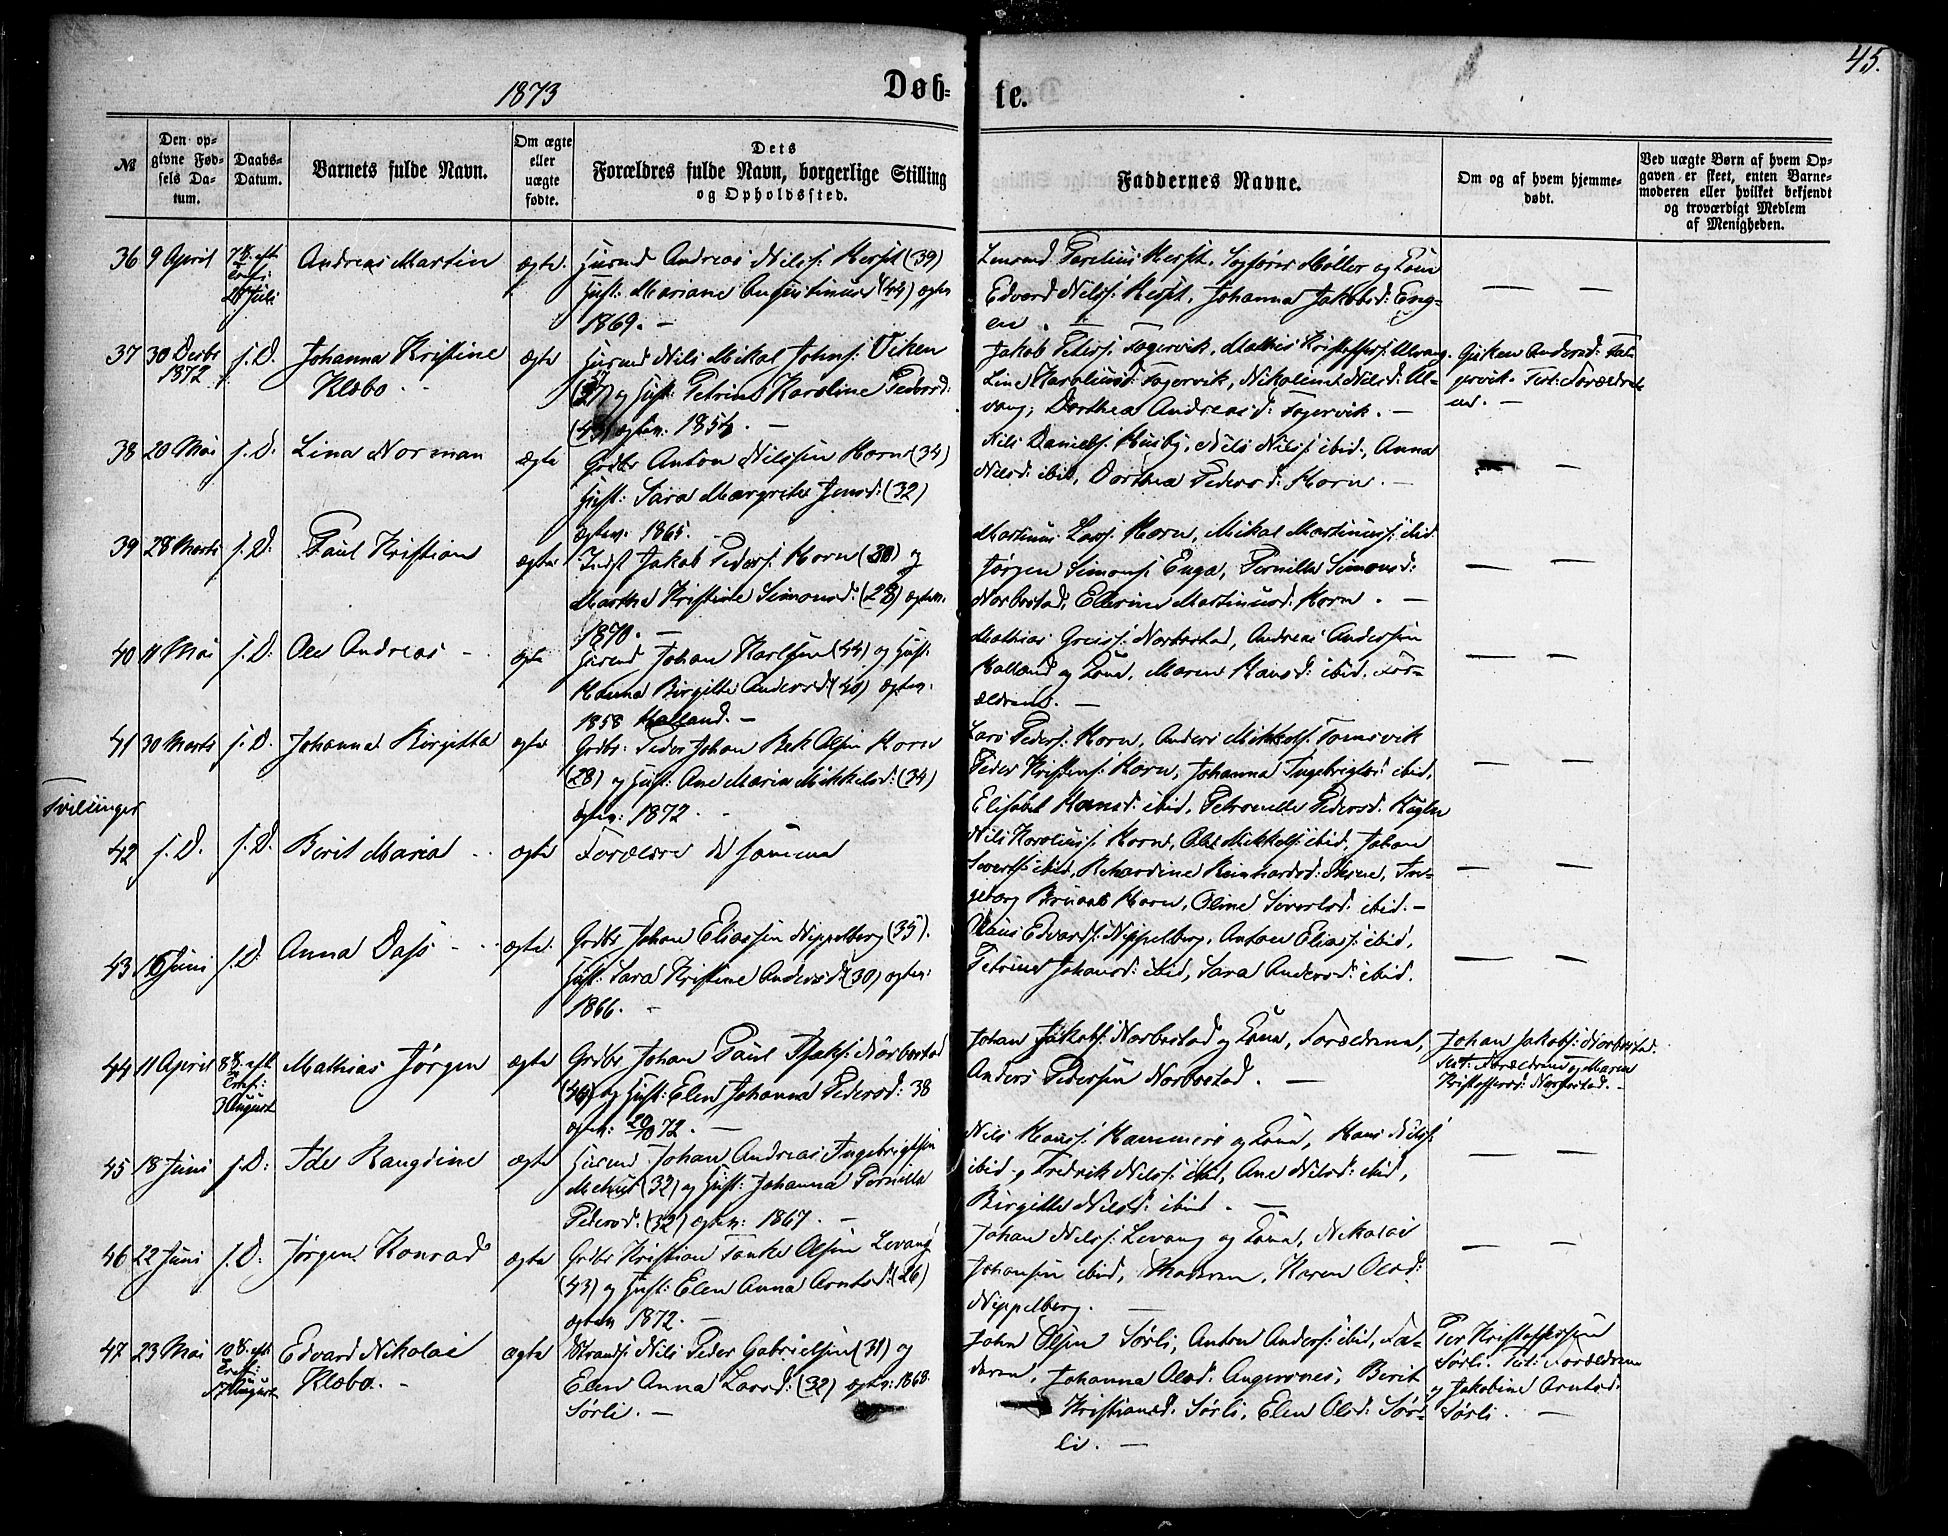 45.
1873
Døb-
te.
№
Den op-
givne Fød-
sels Da-
tum.
Daabs-
Datum.
Barnets fulde Navn.
Om ægte
eller
uægte
fødte.
Dets
Forældres fulde Navn, borgerlige Stilling
og Opholdssted.
Faddernes Navne.
Om og af hvem hjemme-
døbt.
Ved uægte Børn af hvem Op-
gaven er skeet, enten Barne-
moderen eller hvilket bekjendt
og troværdigt Medlem
af Menigheden.
36 9 April
Juli
Andreas Martin
ægte.
Andreas Nilss: (39)
Hust: Mariane Augustinusd (44) ægtev
1869. —
Edvard Nilss: Johanna Jakobsd: Eng-
en. —
— —
37 30 Decbr
1872
s. D.
Johanna Kristine
Klæbo.
ægte
Husmd Nils Mikal Johns: Viken
og Hust: Petrine Karoline Pedersd:
ægtev. 1854. —
Jakob Peters: Fagervik, Mathis Kristoffers: Alvang.
Line Karoliusd: Fagervik, Nikoline Nilsd: Al-
vang, Dorthea Andreasd: Fagervik. —
Andersd: Fa-
gervik. Test: Forældre-
ne. —
38 20 Mai s. D.
Lina Norman
ægte
Grdbr Anton Nilssen Horn (34)
Hust: Sara Margrethe Jensd: (32)
ægtev. 1865.
Nils Daniels: Husby, Nils Nilss: ibid., Anna
Nilsd: ibid, Dorthea Pedersd: Horn. —
— —
39 28 Marts s. D.
Paul Kristian
ægte
Indst Jakob Peders: Horn (30) og
Martha Kristine Simonsd: (28) ægtev.
1870. —
Martinus Lars: Horn, Mikal Martinuss: ibid
Jørgen Simons: Enga, Pernille Simonsd:
Norbostad, Ellerine Martinusd: Horn. —
— —
40 11 Mai s. D:
Ole Andreas
ægte
Husmd Johan Karlsen (44) og Hust:
Hanna Birgitte Andersd (40) ægtev.
1858 Halland. —
Mathias Greiss: Norbostad, Andreas Andersen
Halland og Kone, Maren Hansd: ibid. For-
ældrene. —
— —
41 30 Marts s. D.
Johanna Birgitta
ægte
Grdbr: Peder Johan Bek Olsen Horn
(28) og Hust: Ane Maria Mikkelsd: (34)
ægtev: 1872.
Lars Peders: Horn, Anders Mikkels: Tomsvik
Peder Kristens: Horn, Johanna Ingebrigtsd: ibid,
Elisabet Hansd: ibid, Petronelle Pedersd:
— —
Tvillinger
42 s. D. s. D.
Berit Maria
ægte
Forældre de samme
Nils Karoliuss: Horn, Ole Mikkels: ibid, Johan
Siverts: ibid, Rikardine Reinhardsd: In-
geborg Horn, Oline Sivertsd: ibid. —
— —
43 16 Juni s. D.
Anna Dass
ægte.
Grdbr Johan Eliassen Nippelberg (35).
Hust: Sara Kristine Andersd: (30) ægtev:
1866. —
Edvards: Nippelberg, Anton Elias: ibid,
Petrine Johansd: ibid, Sara Andersd: ibid.
— —
44 11 April
3 August
Mathias Jørgen
ægte
Grdbr Johan Paul Norbostad
og Hust: Elen Johanna Pedersd: 38
ægtev: 72. —
Johan Jakobs: Norbostad og Kone, Forældrene,
Anders Pedersen Norbostad. —
Johan Jakobs: Norbostad.
Test: Forældrene og Maren
Kristoffersd: Norbostad. —
45 18 Juni s. D:
Ida Raugdine
ægte
Husmd Johan Andreas Ingebrigtsen
(32) og Hust: Johanna Pernille
Pedersd. (32) ægtev: 1867. —
Nils Hans: Hammerø og Kone, Hans Nilss:
ibid, Fredrik Nilss: ibid, Ane Nilsd: ibid,
Birgitte Nilsd: ibid. —
— —
46 22 Juni s. D:
Jørgen Konrad
ægte
Grdbr Kristian Tanke Olsen Levang
(43) og Hust: Elen Anna Arntsd: (26)
ægtev 1872. —
Johan Nilss: Levang og Kone, Nikolai
Johansen ibid, Moderen, Karen Olsd:
Nippelberg. —
— —
47 23 Mai
17 August
Edvard Nikolai
Klæbo. —
ægte
Nils Peder Gabrielsen (31) og
Elen Anna Larsd: (32) ægtev: 1868.
Sørli. —
John Olsen Sørli, Anton Anders: ibid, Fa-
deren, Johanna Olsd: Angersnes, Berit
Kristiansd: Sørli, Elen Olsd: Sør-
li. —
Per Kristoffersen
Sørli. Test: Forældrene
og Jakobine Arntsd:
Sørli. —